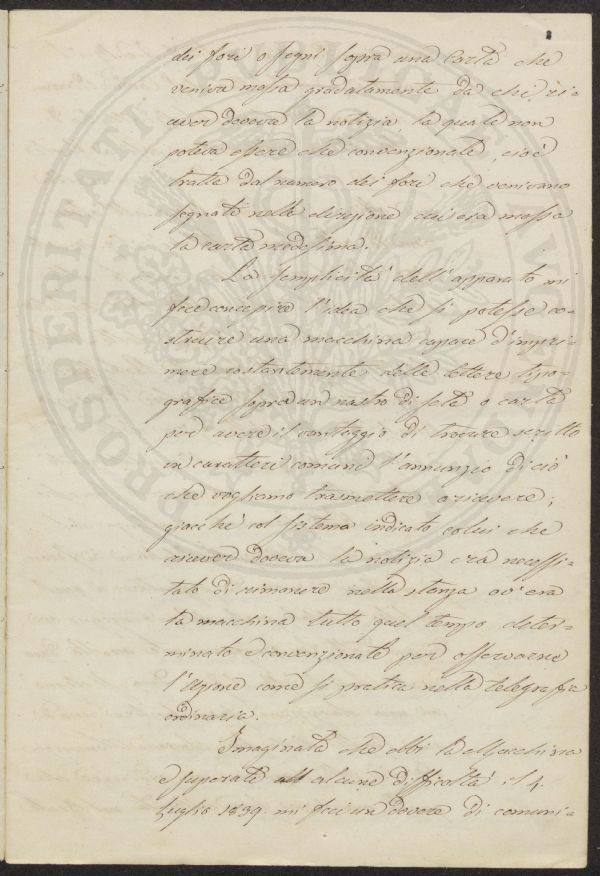 dei fori o segni sopra una Carta che
veniva mossa gradatamente da chi ri=
cever doveva la notizia, la quale non
poteva essere che convenzionale, cioè
tratta dal numero dei fori che venivano
segnati nella direzione cui era mossa
la carta medesima.
La semplicità dell'apparato mi
fece concepire l'idea che si potesse co=
struire una macchina capace d'impri=
mere costantemente delle lettere tipo=
grafice sopra un nastro di seta o carta
per avere il vantaggio di trovare scritto
in caratteri comuni l'annunzio di ciò
che vogliamo trasmettere o ricevere;
giacchè col sistema indicato colui che
ricever doveva la notizia era necessi=
tato di rimanere nella stanza ov'era
la macchina tutto quel tempo deter=
minato e convenzionale per osservarne
l'azione come si pratica nella telegrafia
ordinaria.
Imaginata che ebbi la Macchina
e superate alcune difficoltà il 4.
Luglio 1839. mi feci un dovere di comuni=
PROSPERITATI PUBLICAE